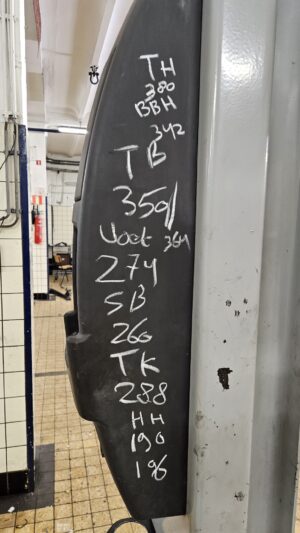 TH
380
BBH
342
TB
350/
Voet 364
274
SB
266
TK
288
HH
190
196